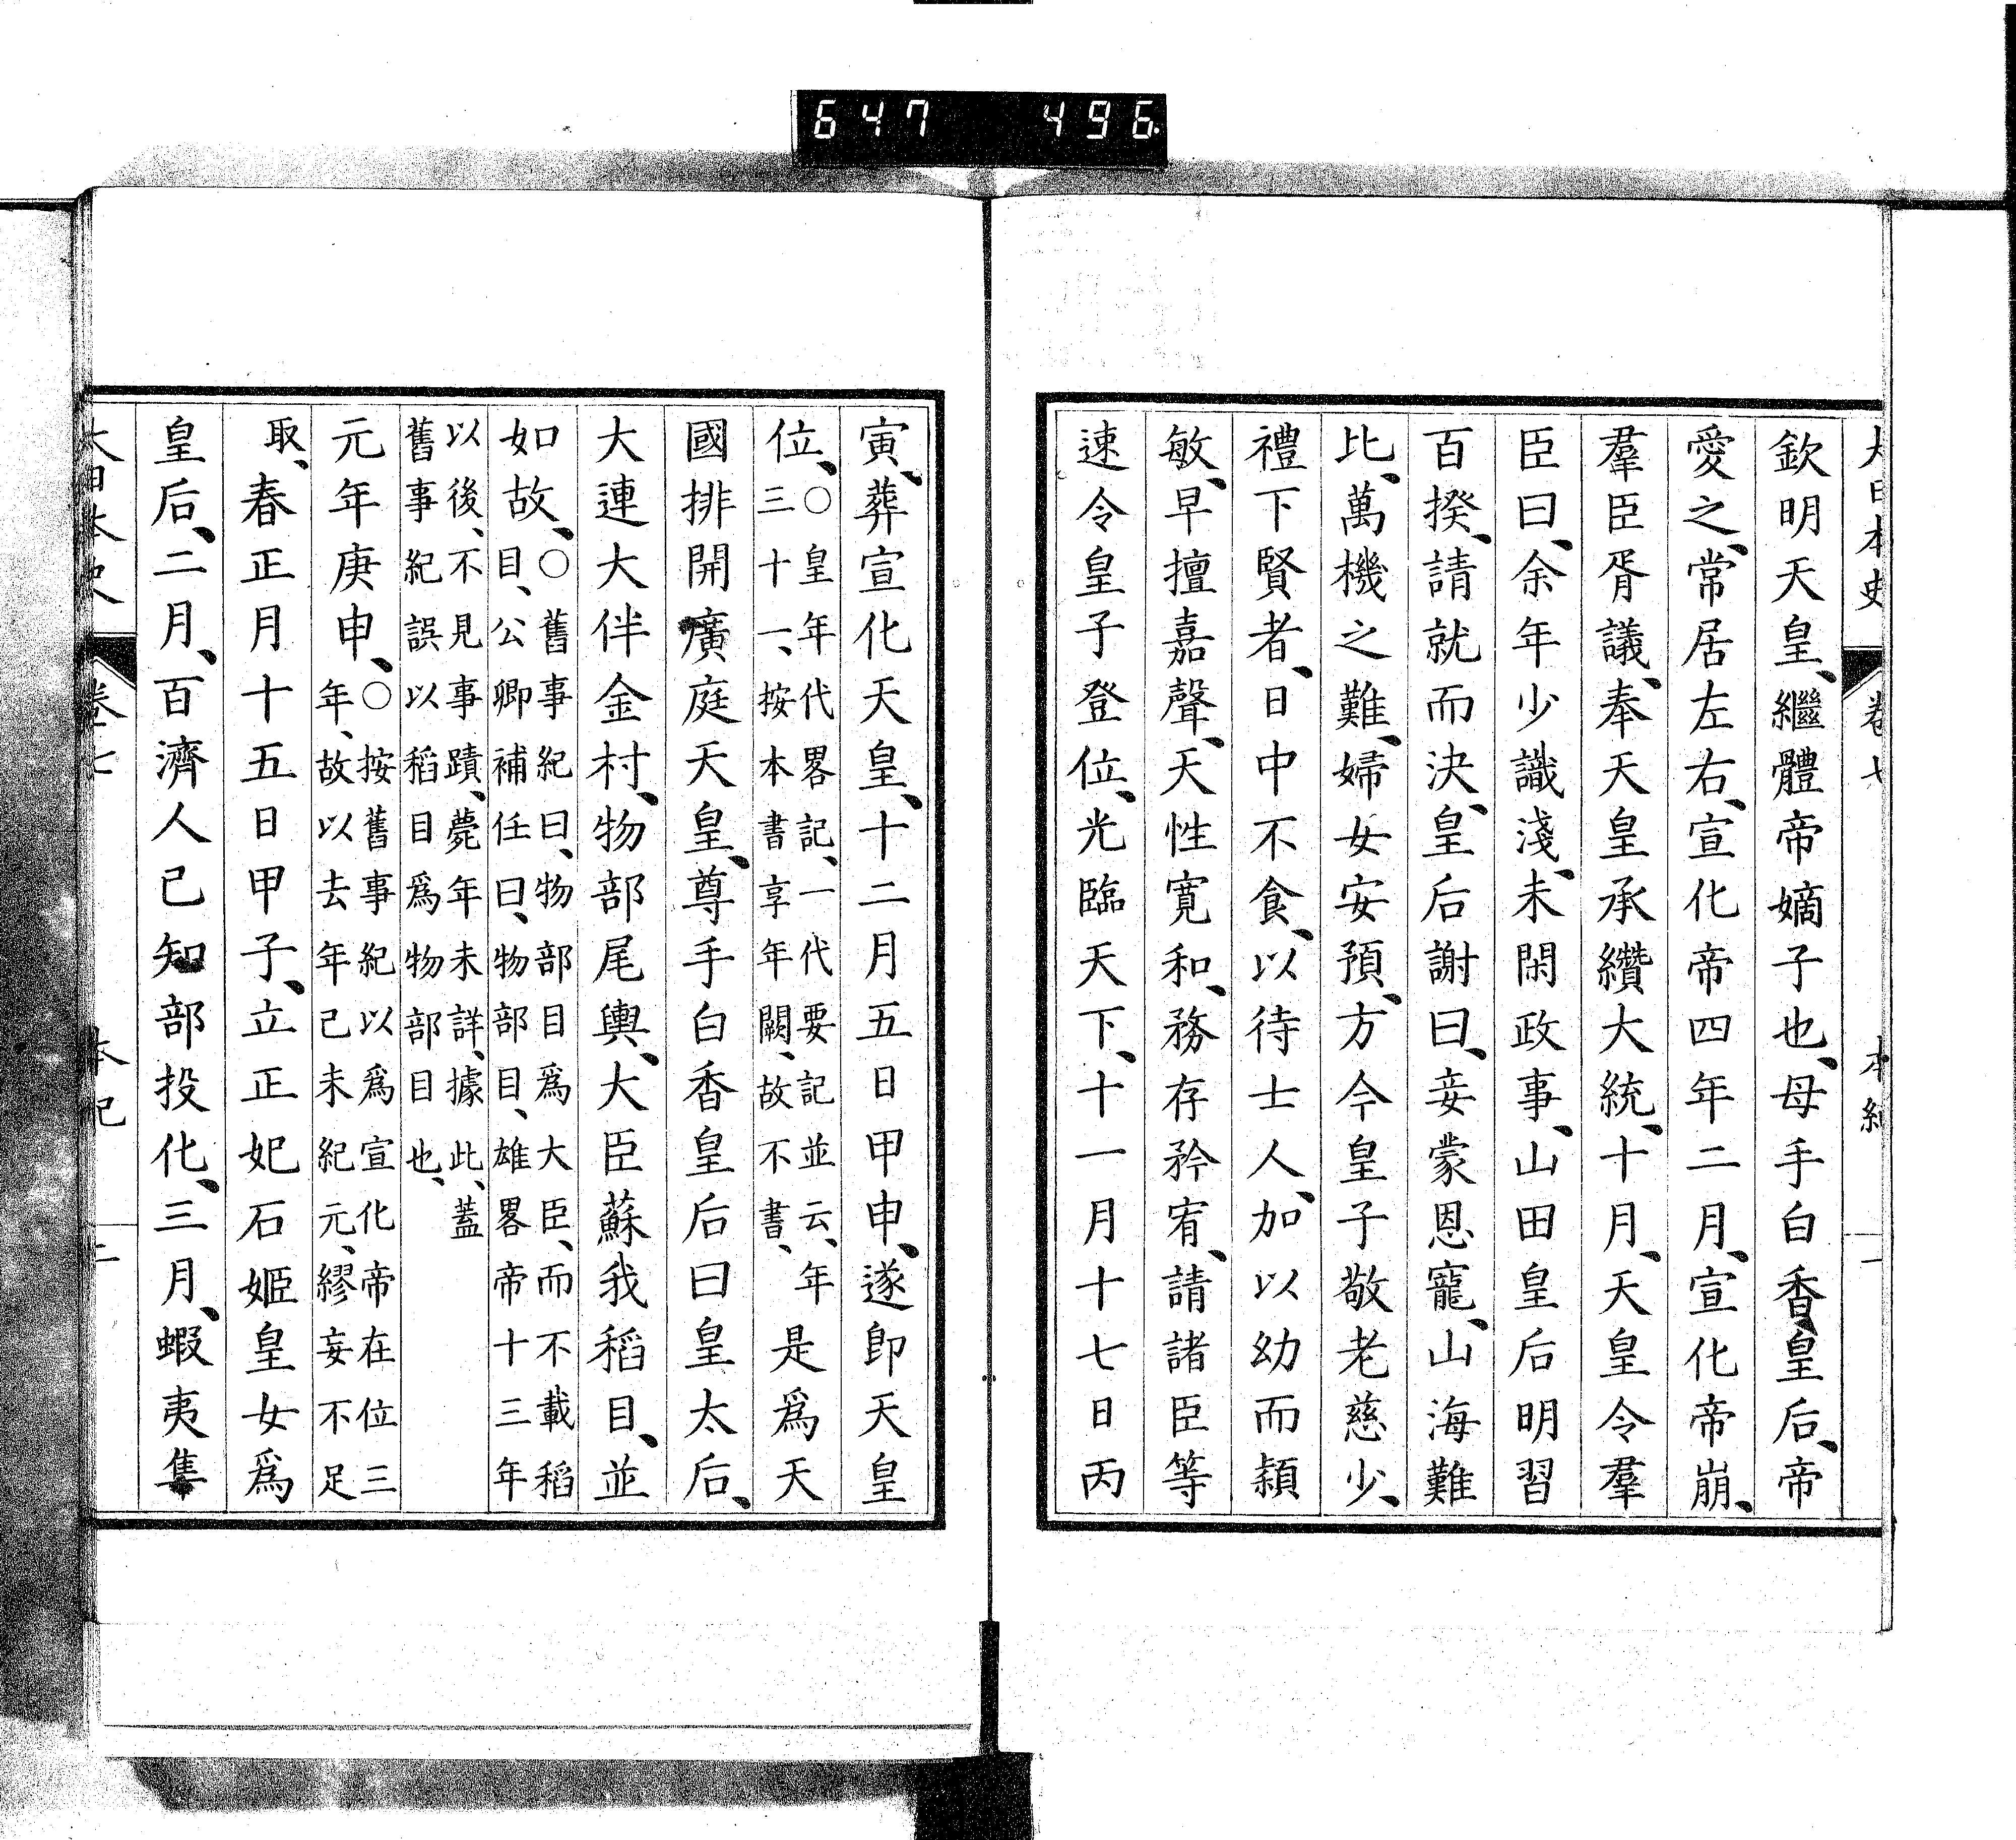 647 496
大日本史 卷七 本紀 一
欽明天皇、繼體帝嫡子也、母手白香皇后、帝
愛之、常居左右、宣化帝四年二月、宣化帝崩、
羣臣胥議、奉天皇承纘大統、十月、天皇令羣
臣曰、余年少識淺、未閑政事、山田皇后明習
百揆、請就而決、皇后謝曰、妾蒙恩寵、山海難
比、萬機之難、婦女安預、方今皇子敬老慈少、
禮下賢者、日中不食、以待士人、加以幼而穎
敏、早擅嘉聲、天性寬和、務存矜宥、請諸臣等
速令皇子登位、光臨天下、十一月十七日丙
寅、葬宣化天皇、十二月五日甲申、遂卽天皇
位、○皇年代畧記、一代要記並云、年三十一、按本書享年闕、故不書、是爲天
國排開廣庭天皇、尊手白香皇后曰皇太后、
大連大伴金村、物部尾輿、大臣蘇我稻目、並
如故、○舊事紀曰、物部目爲大臣、而不載稻目、公卿補任曰、物部目、雄畧帝十三年
以後、不見事蹟、薨年未詳、據此、蓋舊事紀誤以稻目爲物部目也、
元年庚申、○按舊事紀以爲宣化帝在位三年、故以去年己未紀元、繆妄不足
取、春正月十五日甲子、立正妃石姬皇女爲
皇后、二月、百濟人己知部投化、三月、蝦夷隼
大日本史 卷七 本紀 二